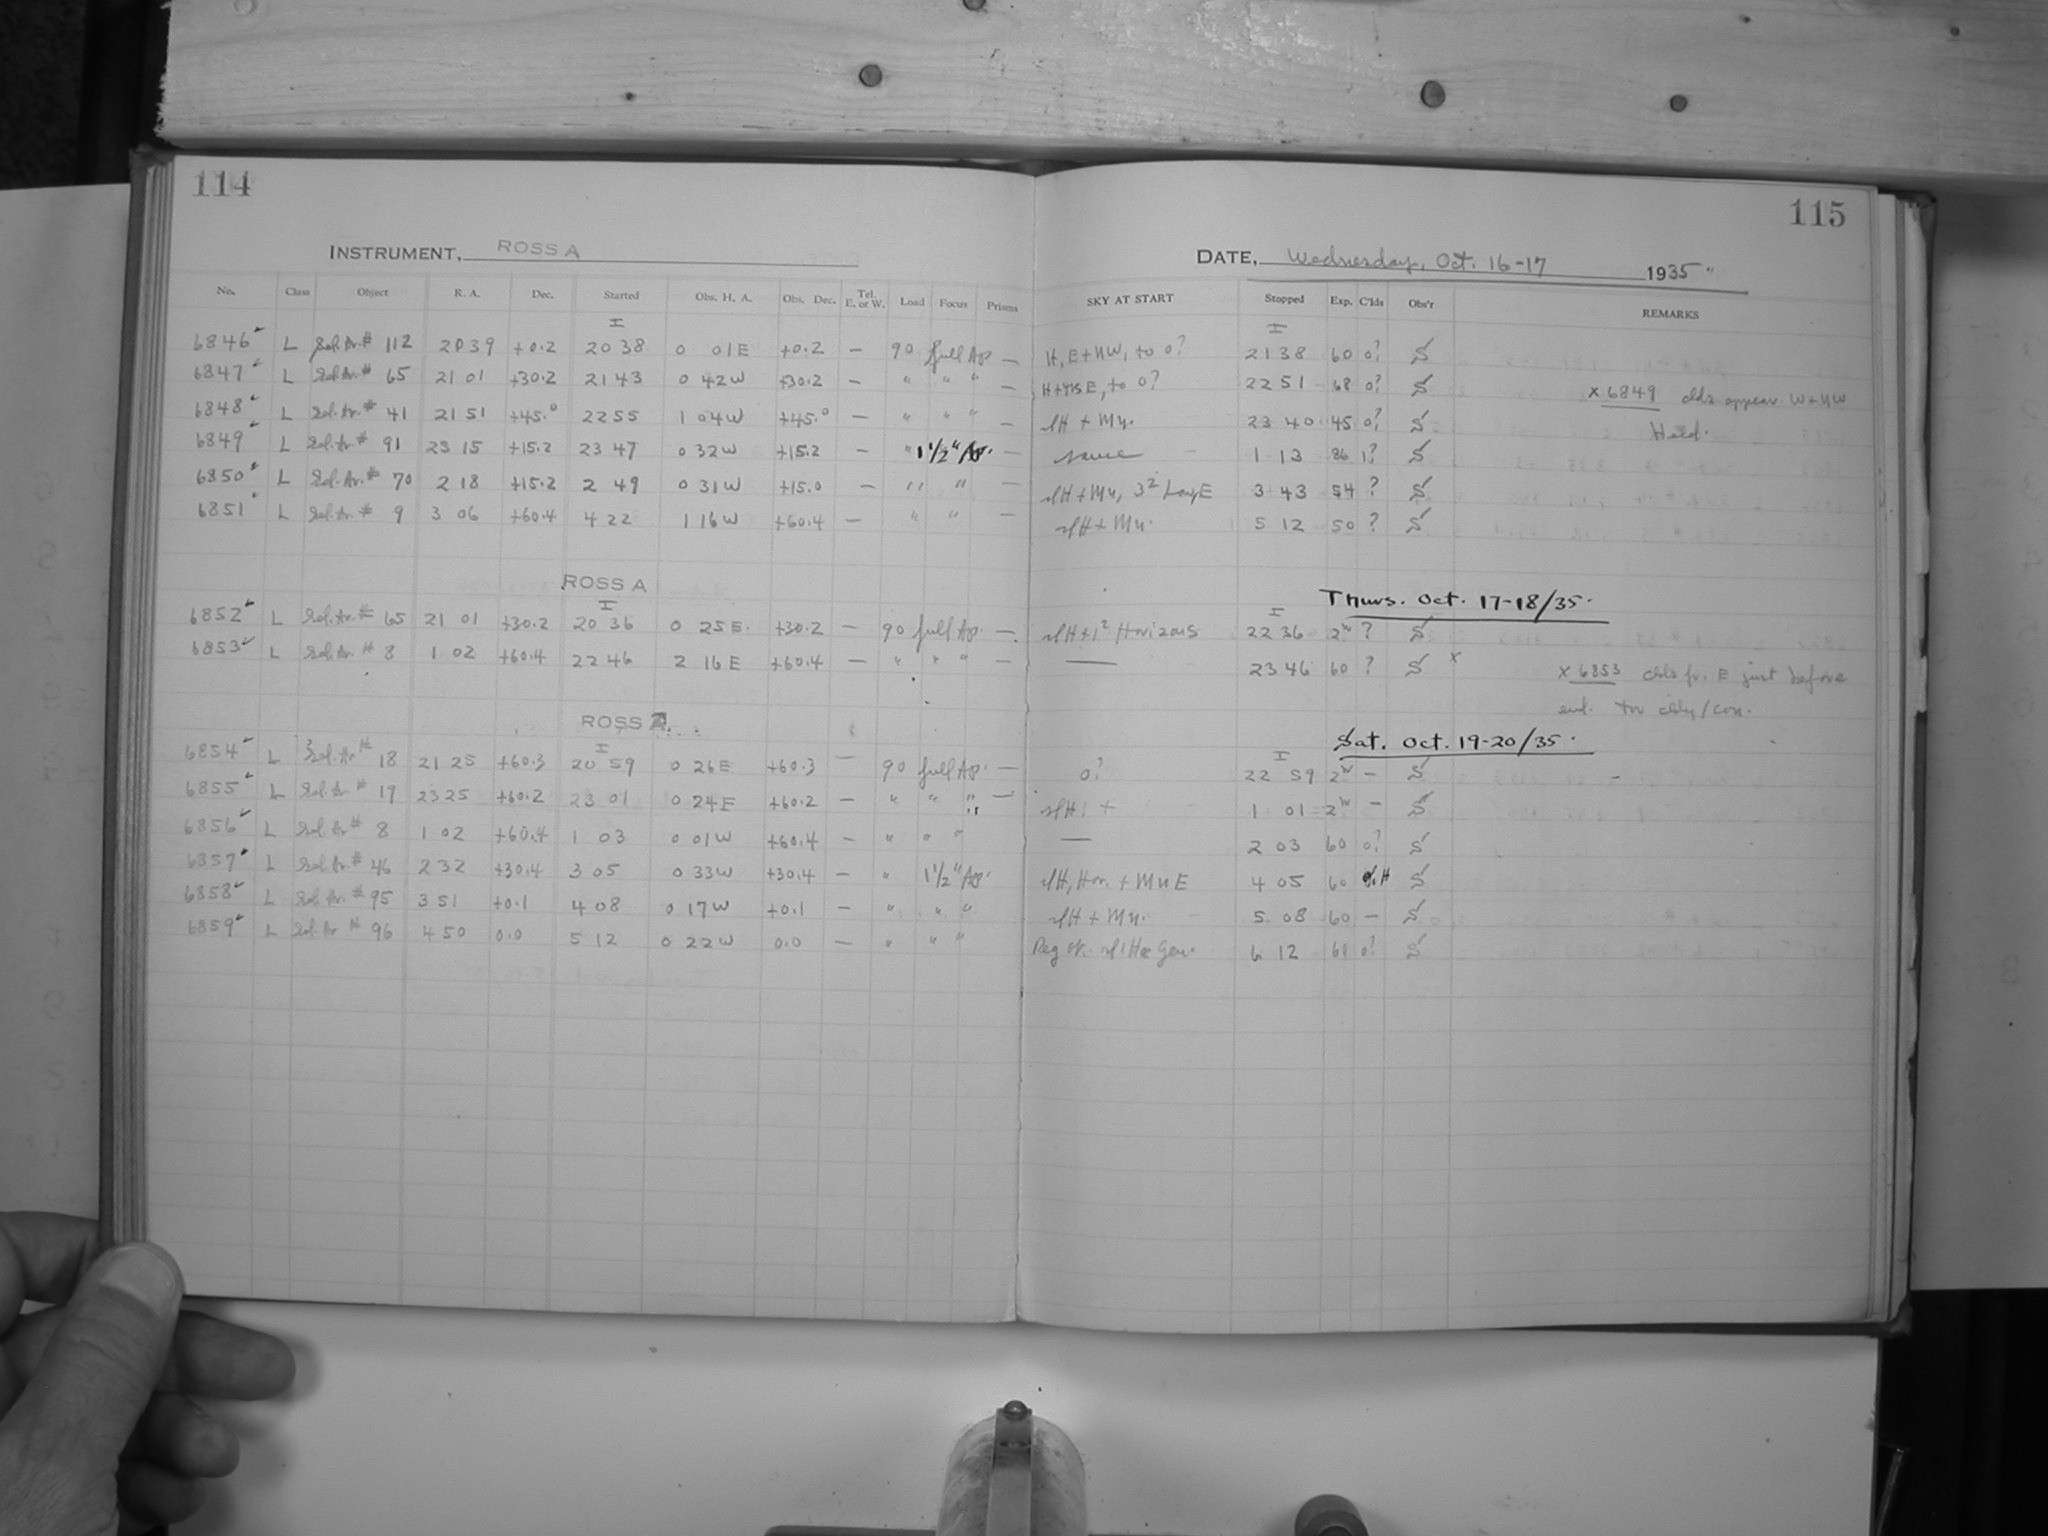 114
115
INSTRUMENT, ROSS A
DATE, Wednesday, Oct. 16-17 1935
No. Class Object R. A. Dec. Started Obs. H. A. Obs. Dec. Tel. E. or W. Load Focus Prisms SKY AT START Stopped Exp. C'lds Obs'r REMARKS
6846 L Sel. Ar. # 112 20 39 +0.2 20 38 0 01E +0.2 — 90 full Ap — H, E+NW, to 0? 21 38 60 0? S
6847 L Sel. Ar. # 65 21 01 +30.2 21 43 0 42W +30.2 — " " " — to 0? 22 51 68 0? S x 6849 clds appear W+NW
6848 L Sel. Ar. # 41 21 51 +45.0 22 55 1 04W +45.0 — " " " — 23 40 45 0? S
6849 L Sel. Ar. # 91 23 15 +15.2 23 47 0 32W +15.2 — " 1 1/2" Ap. — same 1 13 86 1? S
6850 L Sel. Ar. # 70 2 18 +15.2 2 49 0 31W +15.0 — " " — 3 43 54 ? S
6851 L Sel. Ar. # 9 3 06 +60.4 4 22 1 16W +60.4 — " " — 5 12 50 ? S
ROSS A
Thurs. Oct. 17-18/35.
6852 L Sel. Ar. # 65 21 01 +30.2 20 36 0 25E +30.2 — 90 full Ap. — Horizons 22 36 2h ? S
6853 L Sel. Ar. # 8 1 02 +60.4 22 46 2 16E +60.4 — " " " — — 23 46 60 ? S x x 6853 clds fr. E just before
end. too cldy/con.
ROSS A
Sat. Oct. 19-20/35.
6854 L Sel. Ar. # 18 21 25 +60.3 20 59 0 26E +60.3 — 90 full Ap. — 0? 22 59 2h — S
6855 L Sel. Ar. # 19 23 25 +60.2 23 01 0 24E +60.2 — " " " — 1 01 2h — S
6856 L Sel. Ar. # 8 1 02 +60.4 1 03 0 01W +60.4 — " " " — 2 03 60 0? S
6857 L Sel. Ar. # 46 2 32 +30.4 3 05 0 33W +30.4 — " 1 1/2" Ap. 4 05 60 S
6858 L Sel. Ar. # 95 3 51 +0.1 4 08 0 17W +0.1 — " " " 5 08 60 — S
6859 L Sel. Ar. # 96 4 50 0.0 5 12 0 22W 0.0 — " " " 6 12 60 0? S